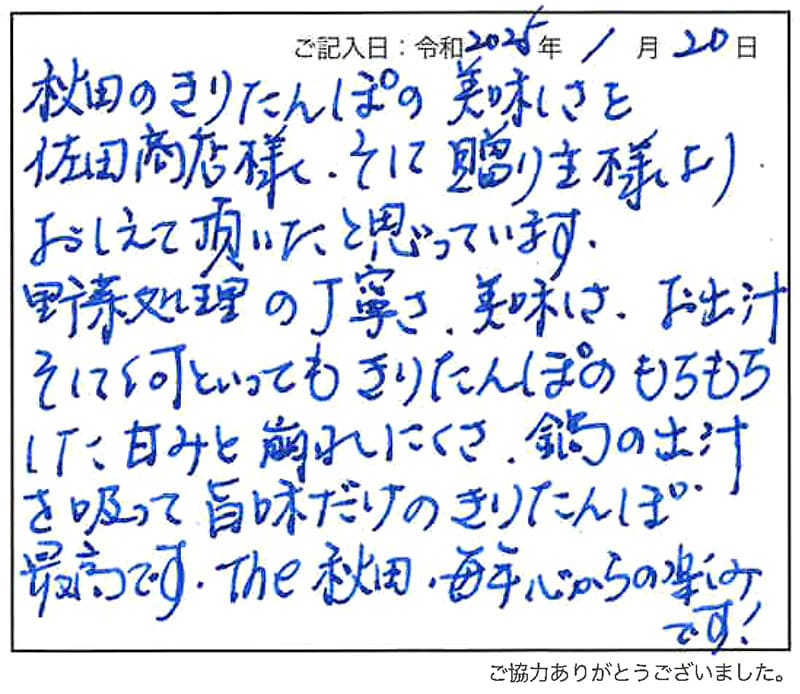 ご記入日：令和2025年 1月20日
秋田のきりたんぽの美味しさを
佐田商店様、そして贈り主様より
おしえて頂いたと思っています。
野菜処理の丁寧さ、美味しさ、お出汁
そして何といってもきりたんぽのもちもち
した甘みと崩れにくさ、鍋の出汁
を吸って旨味だけのきりたんぽ
最高です。The 秋田、毎年心からの楽しみ
です！
ご協力ありがとうございました。